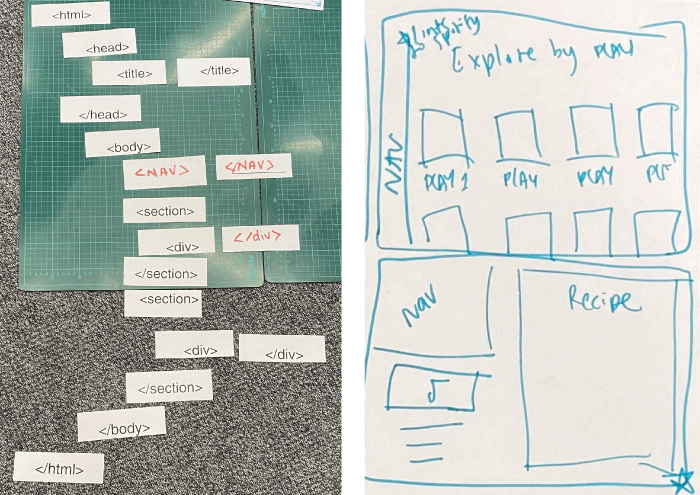 <html>
<head>
<title> </title>
</head>
<body>
<NAV> </NAV>
<section>
<div> </div>
</section>
<section>
<div> </div>
</section>
</body>
</html>
Explore by PLAY
NAV
PLAY 1 PLAY PLAY
Nav
Recipe